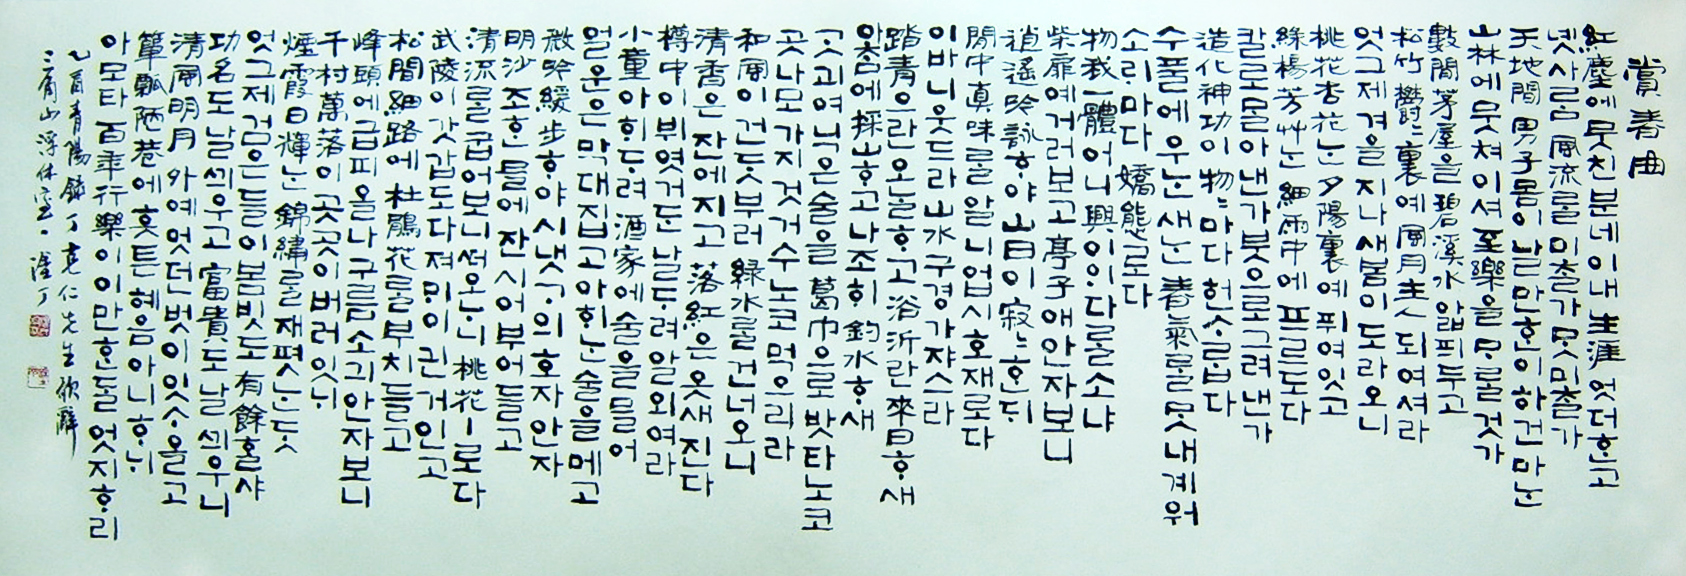 賞春曲
紅塵에 뭇친 분네 이내 生涯 엇더ᄒᆞᆫ고
녯사ᄅᆞᆷ 風流ᄅᆞᆯ 미ᄎᆞᆯ가 ᄆᆞᆺ미ᄎᆞᆯ가
天地間 男子 몸이 날만ᄒᆞᆫ 이 하건마ᄂᆞᆫ
山林에 뭇쳐 이셔 至樂을 ᄆᆞᄅᆞᆯ 것가
數間茅屋을 碧溪水 앏픠 두고
松竹 欝欝裏예 風月主人 되여셔라
엇그제 겨을 지나 새봄이 도라오니
桃花杏花ᄂᆞᆫ 夕陽裏예 퓌여 잇고
綠楊芳艸ᄂᆞᆫ 細雨中에 프르도다
칼로 ᄆᆞᆯ아낸가 붓으로 그려낸가
造化神功이 物〻마다 헌ᄉᆞ롭다
수풀에 우ᄂᆞᆫ 새ᄂᆞᆫ 春氣ᄅᆞᆯ ᄆᆞᆺ내 계워
소ᄅᆡ마다 嬌態로다
物我一體어니 興이ᄋᆡ 다ᄅᆞᆯ소냐
柴扉예 거러보고 亭子애 안자보니
逍遙吟詠ᄒᆞ야 山日이 寂〻ᄒᆞᆫᄃᆡ
閒中眞味ᄅᆞᆯ 알 니 업시 호재로다
이바 니웃드라 山水구경 가쟈스라
踏靑으란 오ᄂᆞᆯ ᄒᆞ고 浴沂란 來日ᄒᆞ새
아ᄎᆞᆷ에 採山ᄒᆞ고 나조ᄒᆡ 釣水ᄒᆞ새
ᄀᆞᆺ 괴여 닉은 술을 葛巾으로 밧타노코
곳나모 가지 것거 수노코 먹으리라
和風이 건ᄃᆞᆺ 부러 綠水ᄅᆞᆯ 건너오니
淸香은 잔에 지고 落紅은 옷새 진다
樽中이 뷔엿거ᄃᆞᆫ 날ᄃᆞ려 알외여라
小童 아ᄒᆡᄃᆞ려 酒家에 술을 믈어
얼운은 막대 집고 아ᄒᆡᄂᆞᆫ 술을 메고
微吟緩步ᄒᆞ야 시냇ᄀᆞ의 호자 안자
明沙 조ᄒᆞᆫ 믈에 잔 시어 부어 들고
淸流ᄅᆞᆯ 굽어보니 ᄯᅥ오ᄂᆞ니 桃花ㅣ로다
武陵이 갓갑도다 져 ᄆᆡ이 긘 거인고
松間細路에 杜鵑花ᄅᆞᆯ 부치 들고
峰頭에 급피 올나 구름 소긔 안자보니
千村萬落이 곳곳이 버러 잇ᄂᆡ
煙霞日輝ᄂᆞᆫ 錦繡ᄅᆞᆯ 재폇ᄂᆞᆫ ᄃᆞᆺ
엇그제 검은 들이 봄빗도 有餘ᄒᆞᆯ샤
功名도 날 ᄭᅴ우고 富貴도 날 ᄭᅴ우니
淸風明月 外예 엇던 벗이 잇ᄉᆞ올고
簞瓢陋巷에 흣튼 혜음 아니 ᄒᆞᄂᆡ
아모타 百年行樂이 이만ᄒᆞᆫᄃᆞᆯ 엇지ᄒᆞ리
乙酉靑陽 錄丁克仁先生 歌辭
三角山 浮休室